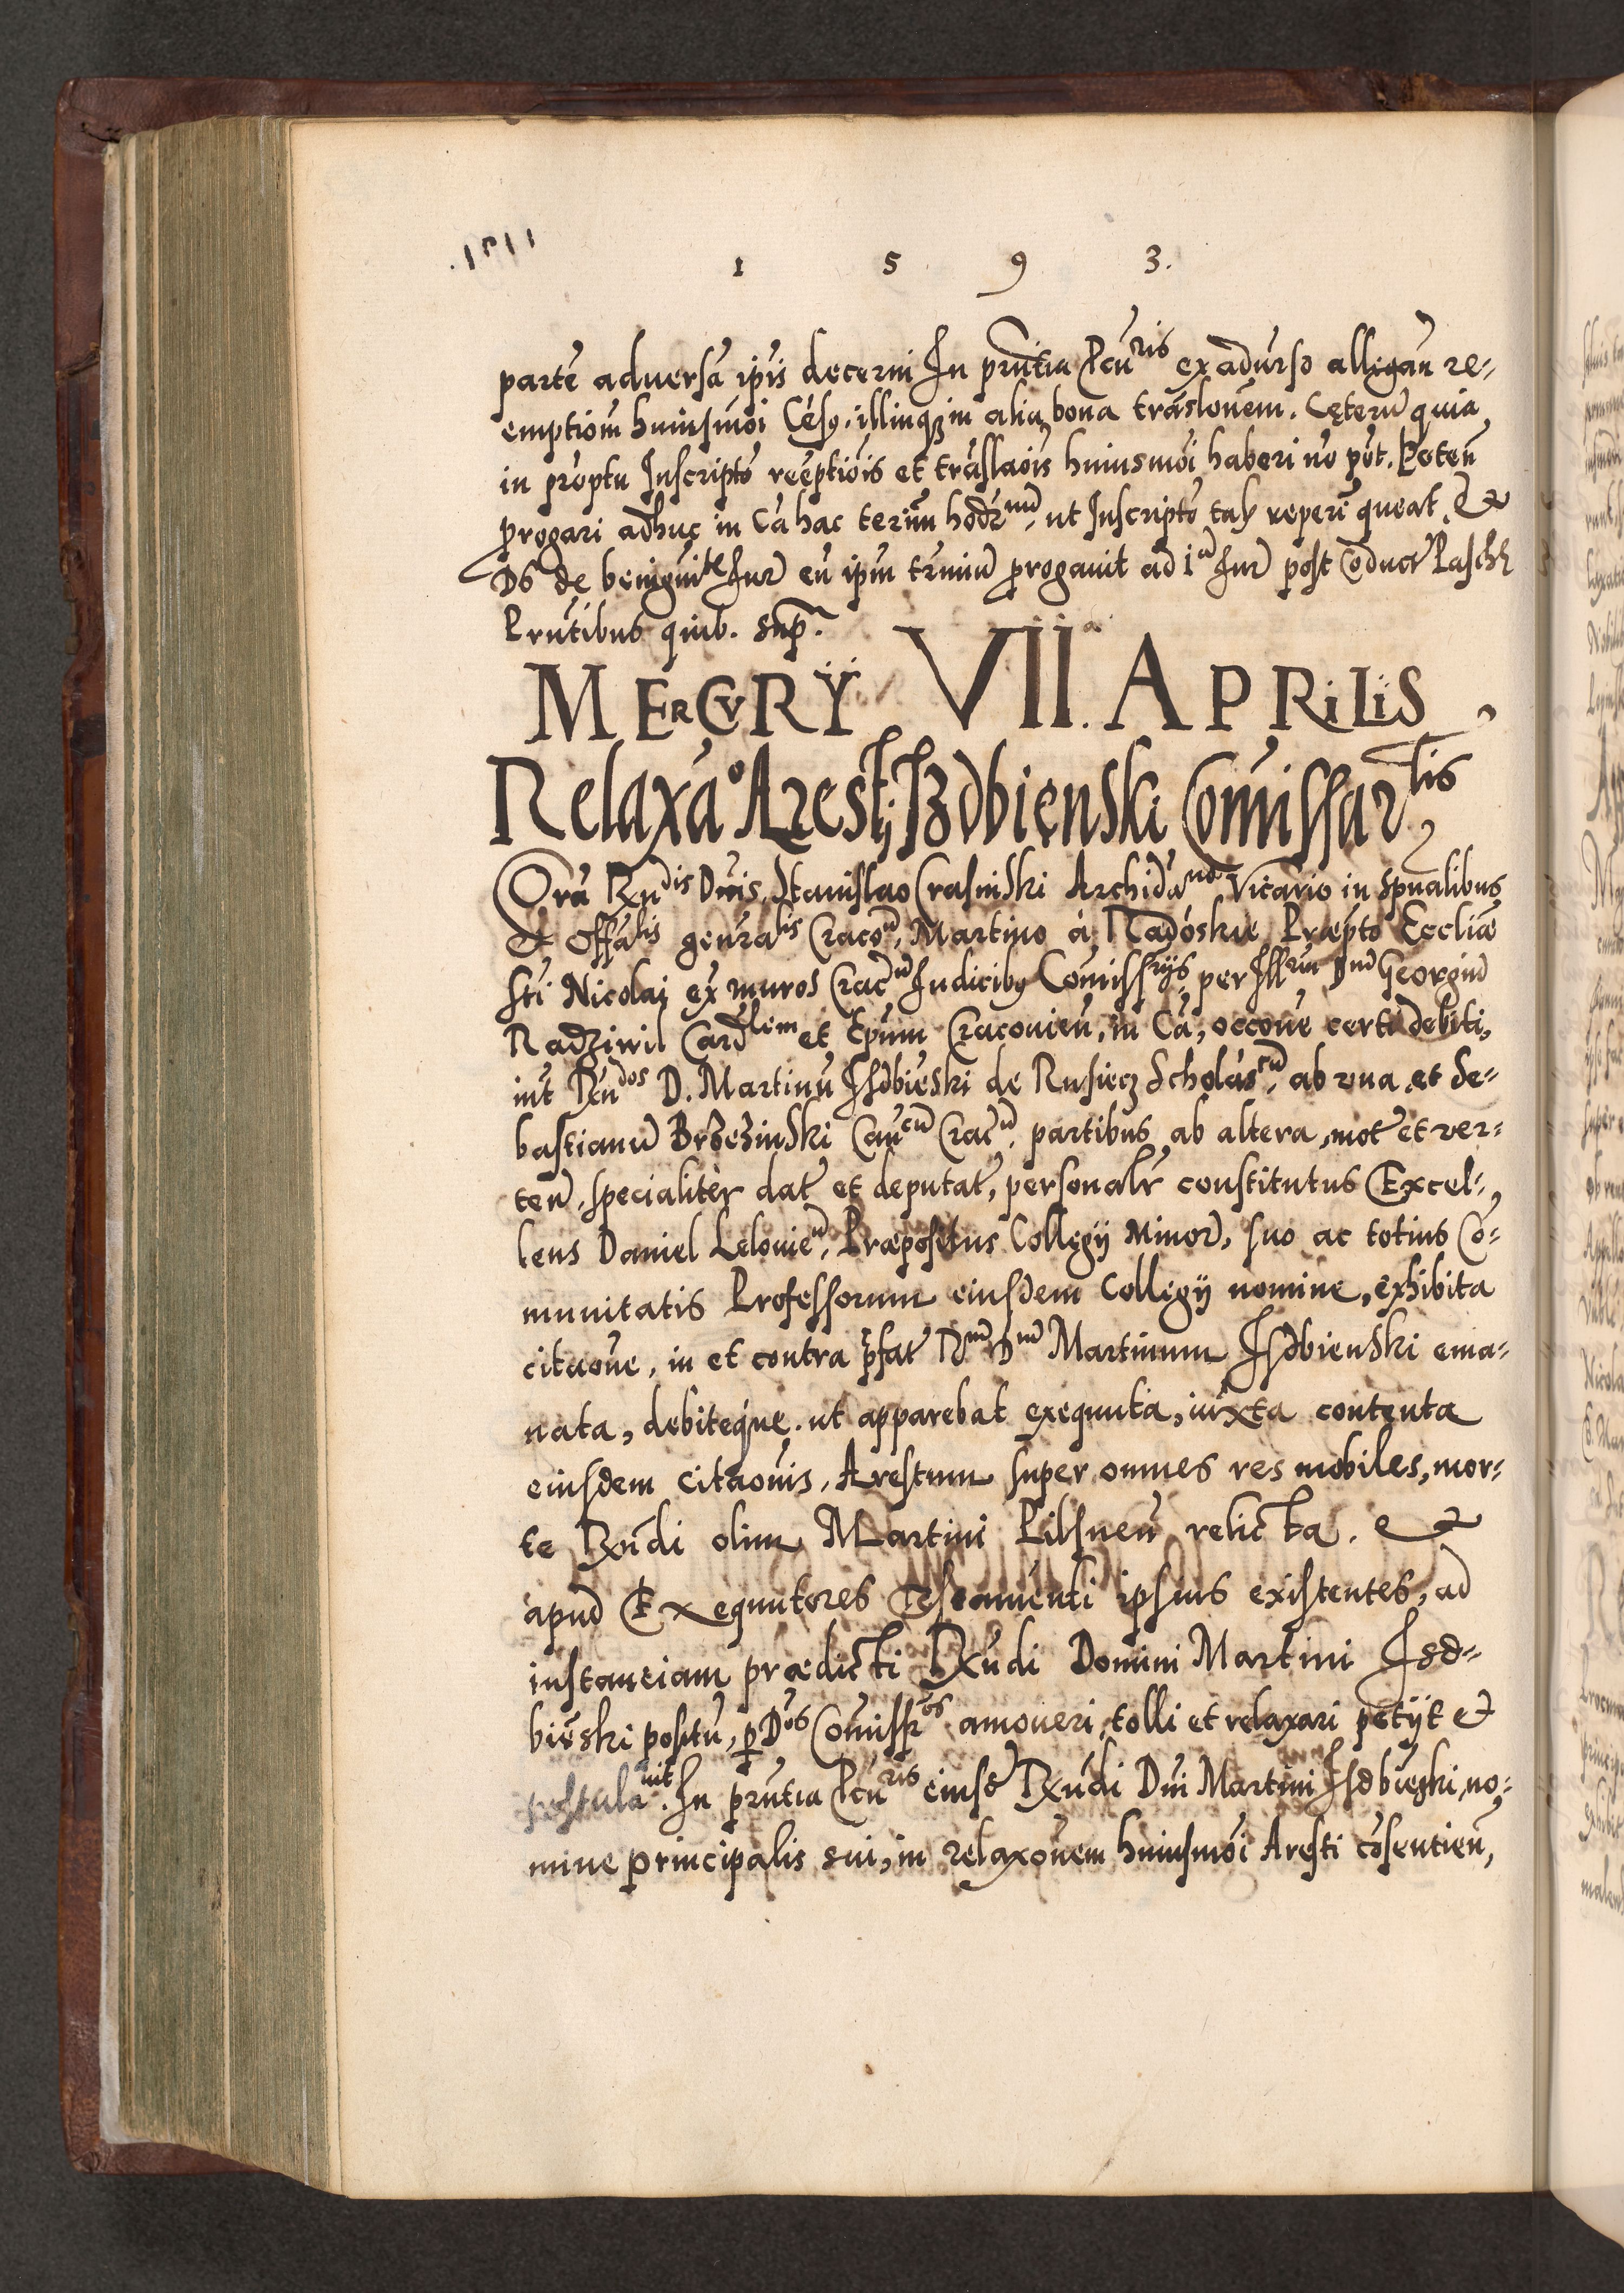 1 5 9 3.
parte aduersa ipis decerni In pñtia Pcuris ex aduerso allegan re-
emptiom huiusmoi Césq. illinqz in alia bona traslonem. Cęterũ quia
in promptu Inscripto reeptiois et traslaois huiusmoi haberi no pot. Peteñ
progari adhuc in Ca hac terim hodrnũ, ut Inscripto taly reperi queat. Et
Ds de benignite Iur eũ ipm trminũ progauit ad 1ũ Iur post Conduct Pasche
Pñtibus quib. sup.
MERCVRY VII APRILIS.
Relaxao Arestj Izdbienski Comissarlis
Cora Rndis Dnis Stanislao Crasinski Archidano Vicario in spualibus
et Offalis genralis Cracoñ, Martino á Nadoskie Præpto Eccliæ
Sti Nicolai ex muros Cracũ Iudicibq Comissrijs per Illrm Dnũ Georgiũ
Radziwil Cardlem et Epum Cracouieñ, in Ca, occone certi debiti,
int Rndos D. Martinũ Isdbieski de Rusiecz Scholascũ, ab vna et Se-
bastianũ Brzezinski Cancũ Cracũ, partibus ab altera, mot et ver-
teñ, specialiter dat et deputat, personalr constitutus Excel-
lens Daniel Lelouieñ, Præpositus Collegij Minor, suo ac totius Co-
munitatis Professorum eiusdem Collegij nomine, exhibita
citaone, in et contra pfat Rnũ Dnũ Martinum Isdbienski ema-
nata, debiteque, ut apparebat exequuta, iuxta contenta
eiusdem citaonis, Arestum super omnes res mobiles, mor-
te Rxñdi olim Martini Pilsneñ relicta. et
apud Exequutores Testamenti ipsius existentes, ad
instanciam prædicti Rxũdi Domini Martini Isd-
bieski positu, p Dnos Comissros amoueri, tolli et relaxari petijt et
postulauit. In prñtia Pcuris eiusd Rxũdi Dni Martini Isdbieski, no-
mine principalis sui, in relaxonem huiusmoi Aresti cõsentieñ,